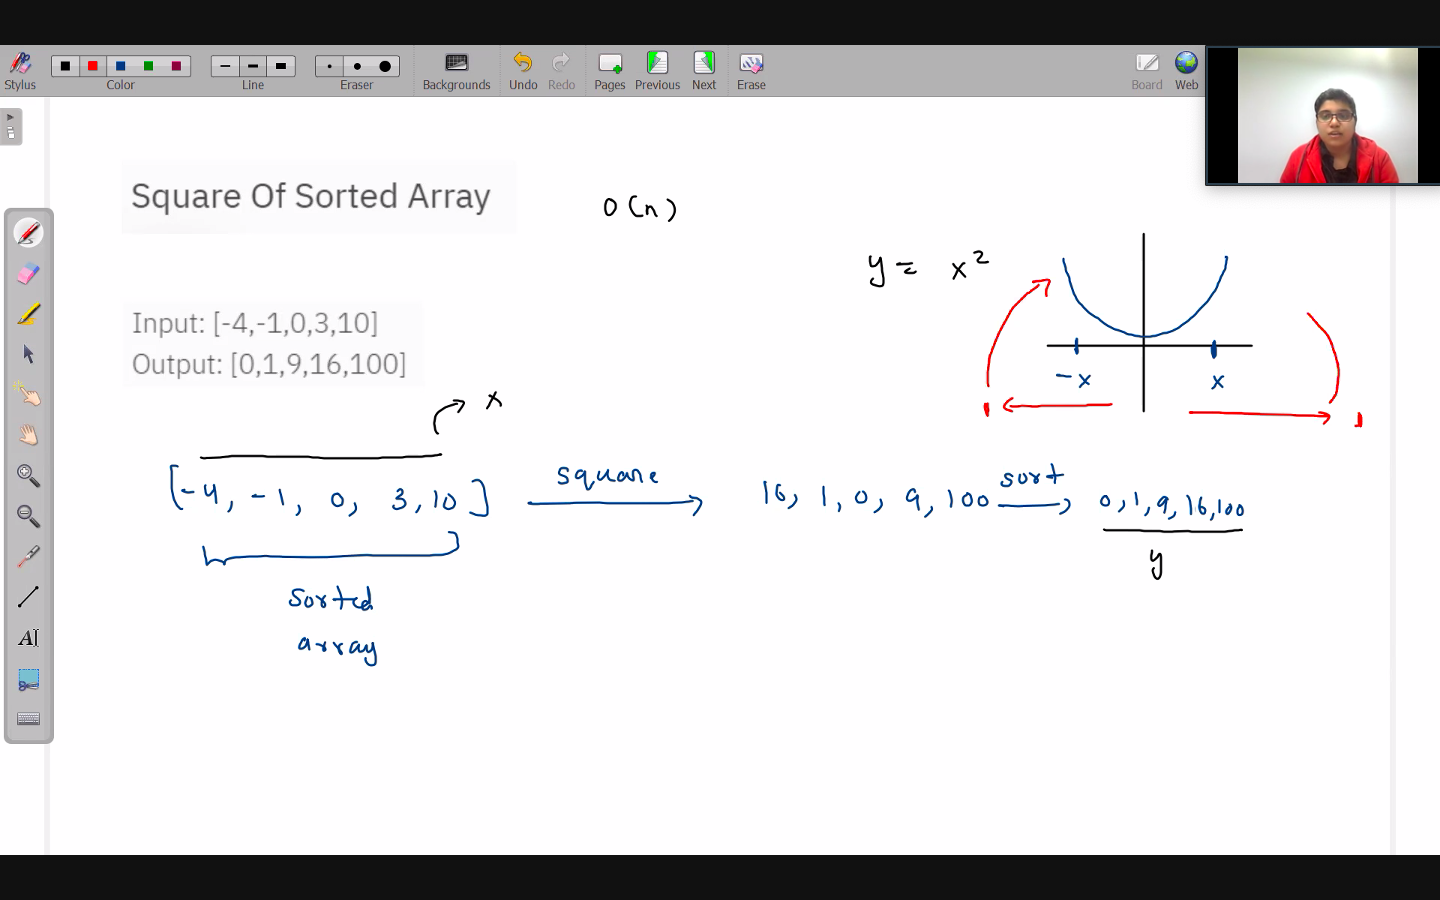 Stylus
Color
Line
Eraser
Backgrounds
Undo
Redo
Pages
Previous
Next
Erase
Board
Web
Square Of Sorted Array
O(n)
y = x²
Input: [-4,-1,0,3,10]
Output: [0,1,9,16,100]
-x
x
x
[-4, -1, 0, 3, 10]
square
16, 1, 0, 9, 100
sort
0, 1, 9, 16, 100
y
sorted
array
AI